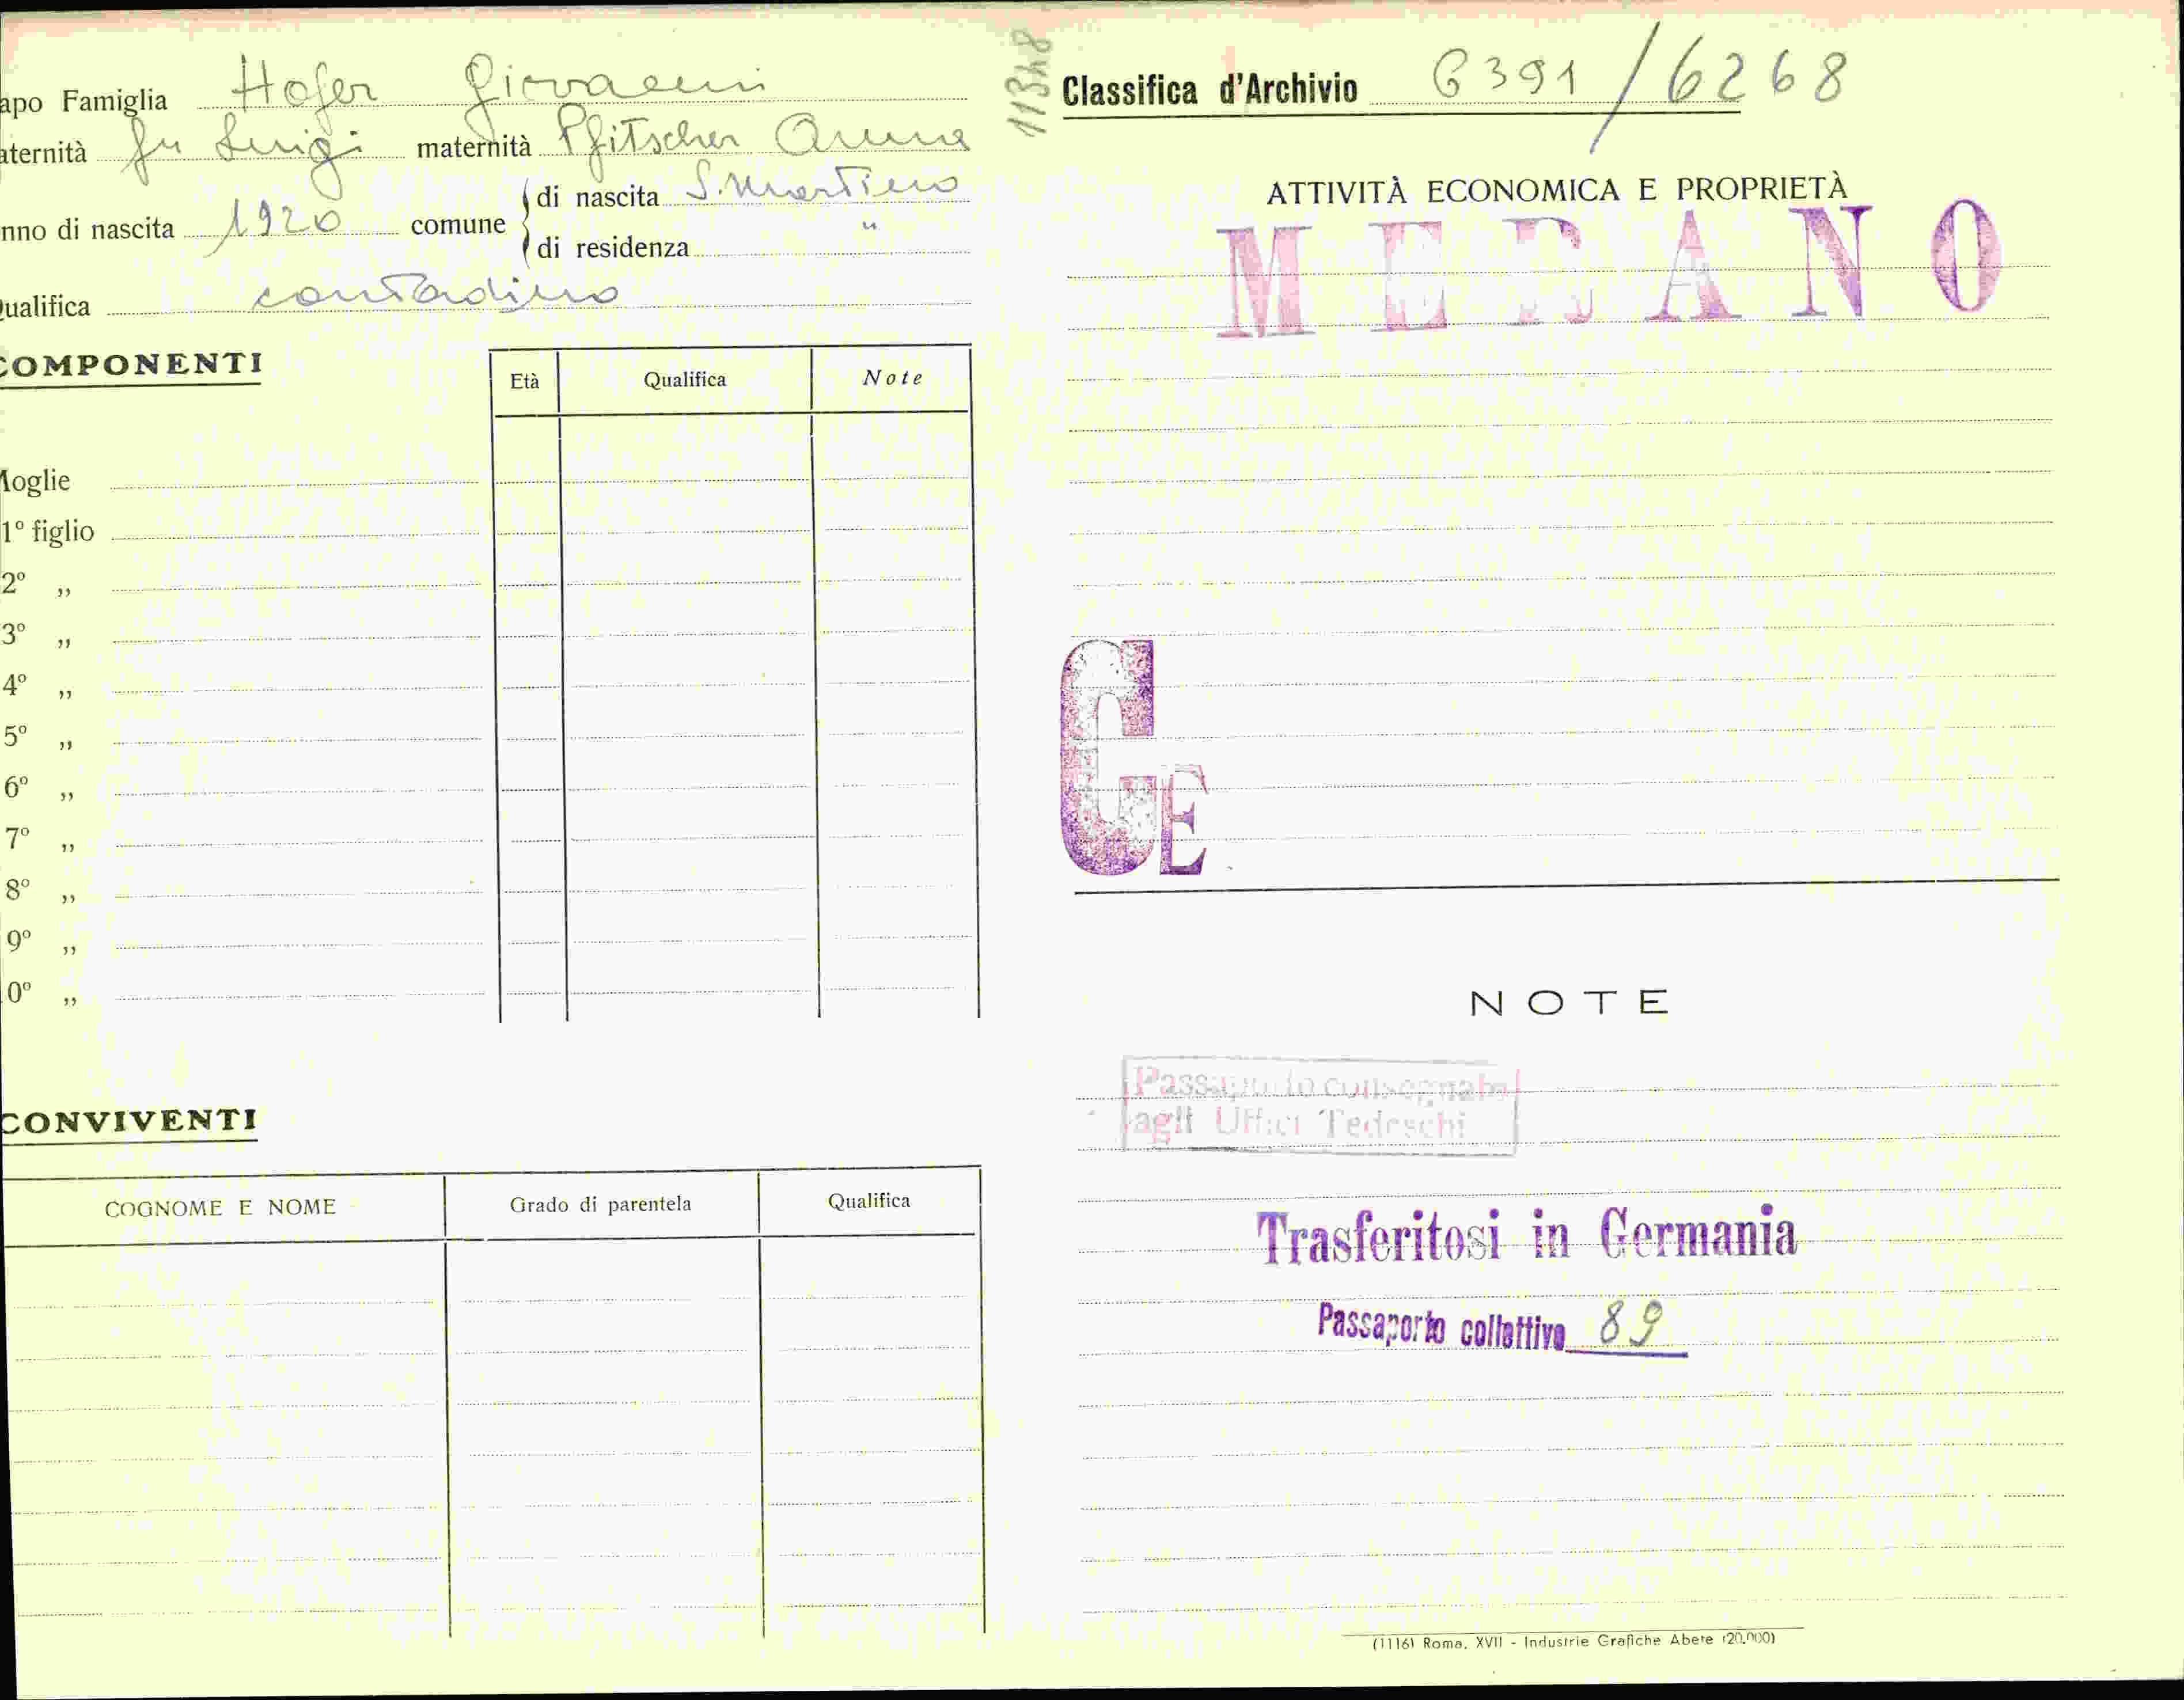 apo Famiglia Hofer Giovanni
aternità fu Luigi maternità Pfitscher Anna
nno di nascita 1920 comune di nascita S. Martino
di residenza "
ualifica contadino
COMPONENTI
Età Qualifica Note
Moglie
1º figlio
2º „
3º „
4º „
5º „
6º „
7º „
8º „
9º „
0º „
CONVIVENTI
COGNOME E NOME Grado di parentela Qualifica
11348
Classifica d'Archivio 6391/6268
ATTIVITÀ ECONOMICA E PROPRIETÀ
MERANO
GE
NOTE
Passaporto consegnato
agli Uffici Tedeschi
Trasferitosi in Germania
Passaporto collettivo 89
(1116) Roma, XVII - Industrie Grafiche Abete (20.000)